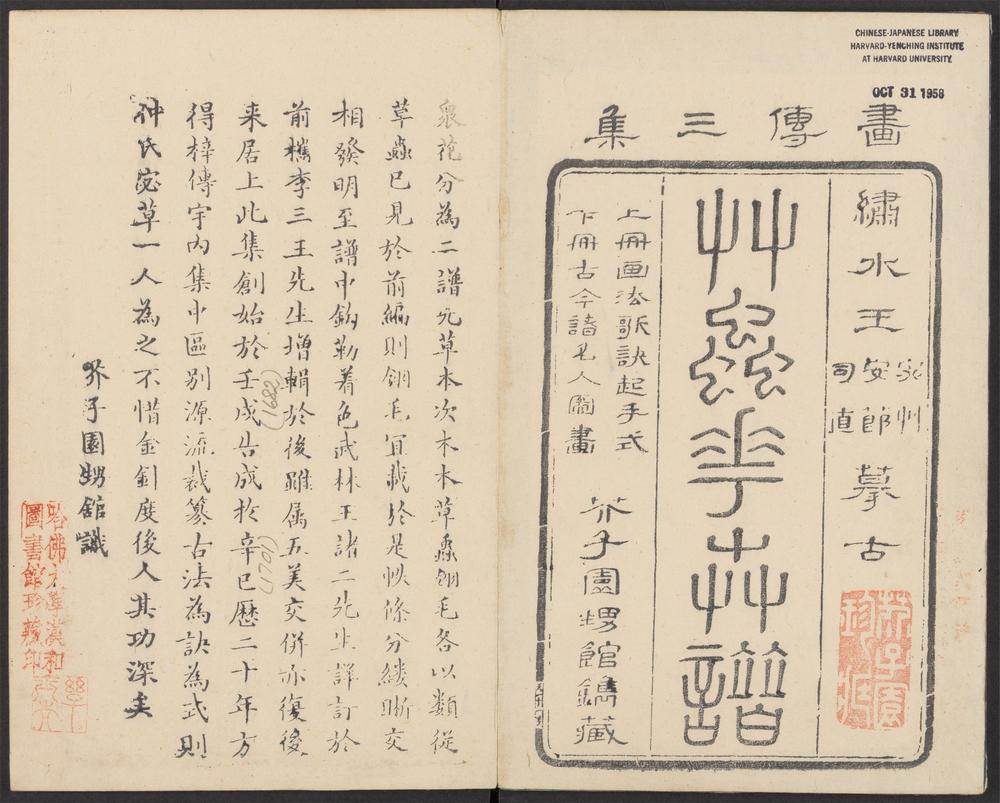 CHINESE-JAPANESE LIBRARY
HARVARD-YENCHING INSTITUTE
AT HARVARD UNIVERSITY
OCT 31 1958
畫傳三集
繡水王
宓艸
安節
司直
摹古
艸蟲華卉譜
上冊画法歌訣起手式
下冊古今諸名人圖畫
芥子園甥館鐫藏
眾花分為二譜先草本次木本草蟲翎毛各以類從
草蟲已見於前編則翎毛宜載於是帙條分縷晰交
相發明至譜中鈎勒着色武林王諸二先生詳訂於
前檇李三王先生增輯於後雖属五美交併亦復後
来居上此集創始於壬戌告成於辛巳歷二十年方
(1682)
(1701)
得梓傳宇內集中區別源流裁纂古法為訣為式則
仲氏宓草一人為之不惜金針度後人其功深矣
芥子園甥館識
哈佛大學漢和
圖書館珍藏印